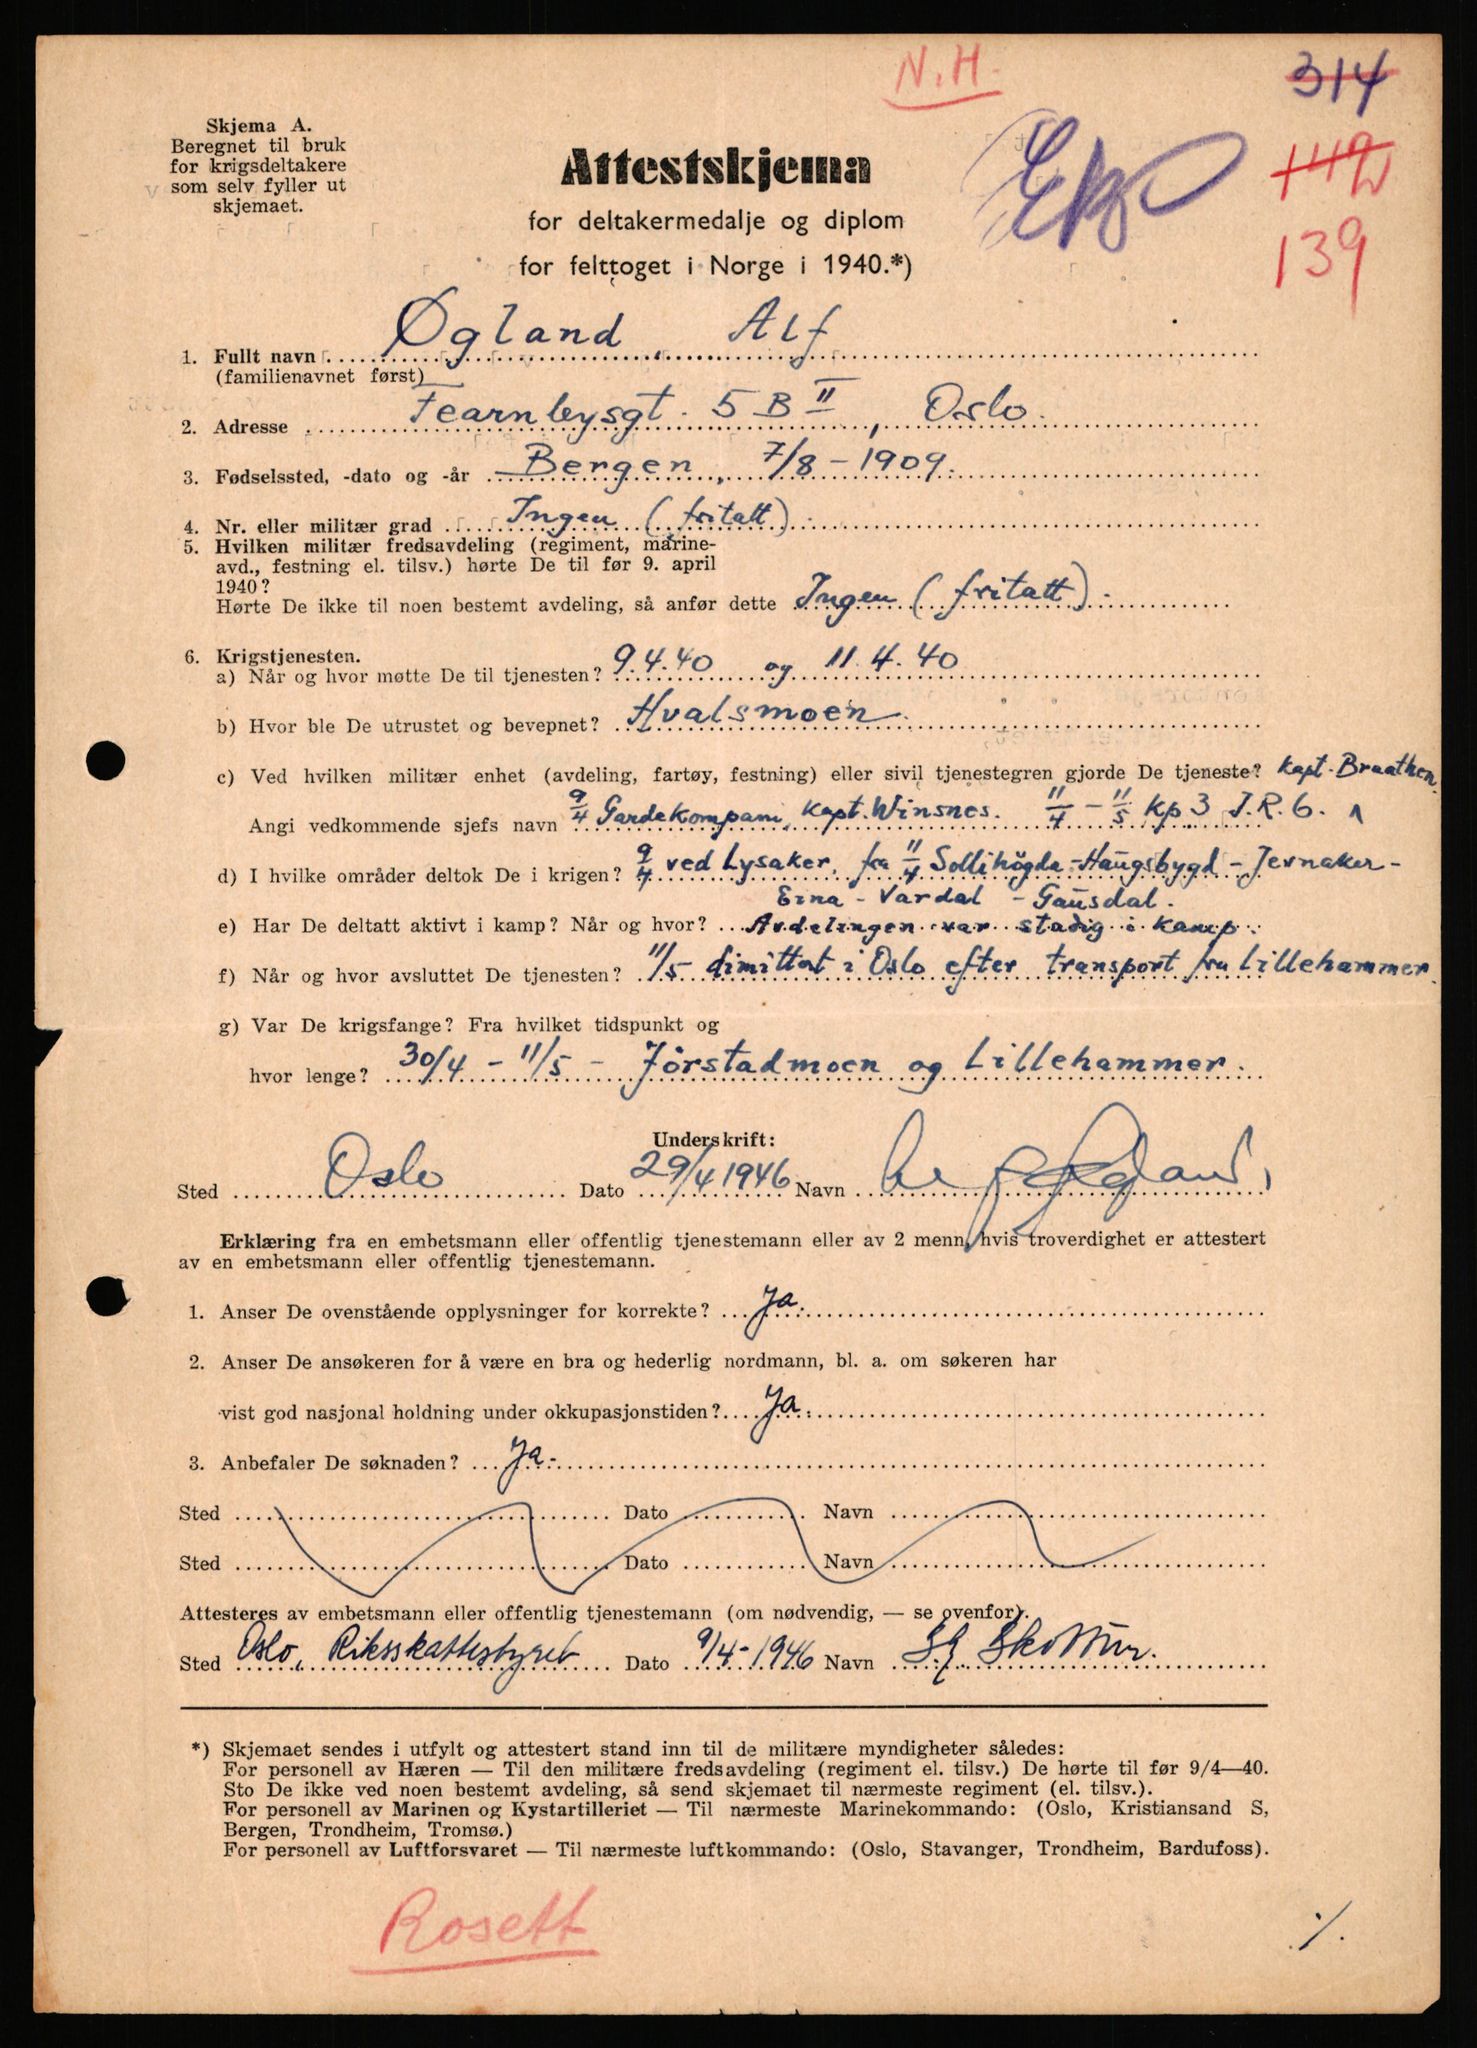 N.H.
314
Skjema A.
Beregnet til bruk
for krigsdeltakere
som selv fyller ut
skjemaet.
Attestskjema
for deltakermedalje og diplom
for felttoget i Norge i 1940.*)
139
1. Fullt navn Øgland, Alf
(familienavnet først)
2. Adresse Fearnleysgt. 5 B II, Oslo.
3. Fødselssted, -dato og -år Bergen, 7/8 - 1909.
4. Nr. eller militær grad Ingen (fritatt)
5. Hvilken militær fredsavdeling (regiment, marine-
avd., festning el. tilsv.) hørte De til før 9. april
1940?
Hørte De ikke til noen bestemt avdeling, så anfør dette Ingen (fritatt).
6. Krigstjenesten.
a) Når og hvor møtte De til tjenesten? 9.4.40 og 11.4.40
b) Hvor ble De utrustet og bevepnet? Hvalsmoen.
c) Ved hvilken militær enhet (avdeling, fartøy, festning) eller sivil tjenestegren gjorde De tjeneste? Kapt. Braathen
Angi vedkommende sjefs navn 9/4 Gardekompani, Kapt. Winsnes. 11/4 - 11/5 Kp 3 I.R.6. ^
d) I hvilke områder deltok De i krigen? 9/4 ved Lysaker, fra 11/4 Sollihögda - Haugsbygd - Jevnaker -
Eina - Vardal - Gausdal.
e) Har De deltatt aktivt i kamp? Når og hvor? Avdelingen var stadig i kamp.
f) Når og hvor avsluttet De tjenesten? 11/5 dimittert i Oslo efter transport fra Lillehammer.
g) Var De krigsfange? Fra hvilket tidspunkt og
hvor lenge? 30/4 - 11/5 - Jörstadmoen og Lillehammer.
Underskrift:
Sted Oslo Dato 29/4 1946 Navn Alf Øgland
Erklæring fra en embetsmann eller offentlig tjenestemann eller av 2 menn, hvis troverdighet er attestert
av en embetsmann eller offentlig tjenestemann.
1. Anser De ovenstående opplysninger for korrekte? Ja.
2. Anser De ansøkeren for å være en bra og hederlig nordmann, bl. a. om søkeren har
vist god nasjonal holdning under okkupasjonstiden? Ja.
3. Anbefaler De søknaden? Ja.
Sted Dato Navn
Sted Dato Navn
Attesteres av embetsmann eller offentlig tjenestemann (om nødvendig, — se ovenfor).
Sted Oslo, Riksskattestyret Dato 9/4-1946 Navn
*) Skjemaet sendes i utfylt og attestert stand inn til de militære myndigheter således:
For personell av Hæren — Til den militære fredsavdeling (regiment el. tilsv.) De hørte til før 9/4—40.
Sto De ikke ved noen bestemt avdeling, så send skjemaet til nærmeste regiment (el. tilsv.).
For personell av Marinen og Kystartilleriet — Til nærmeste Marinekommando: (Oslo, Kristiansand S,
Bergen, Trondheim, Tromsø.)
For personell av Luftforsvaret — Til nærmeste luftkommando: (Oslo, Stavanger, Trondheim, Bardufoss).
Rosett